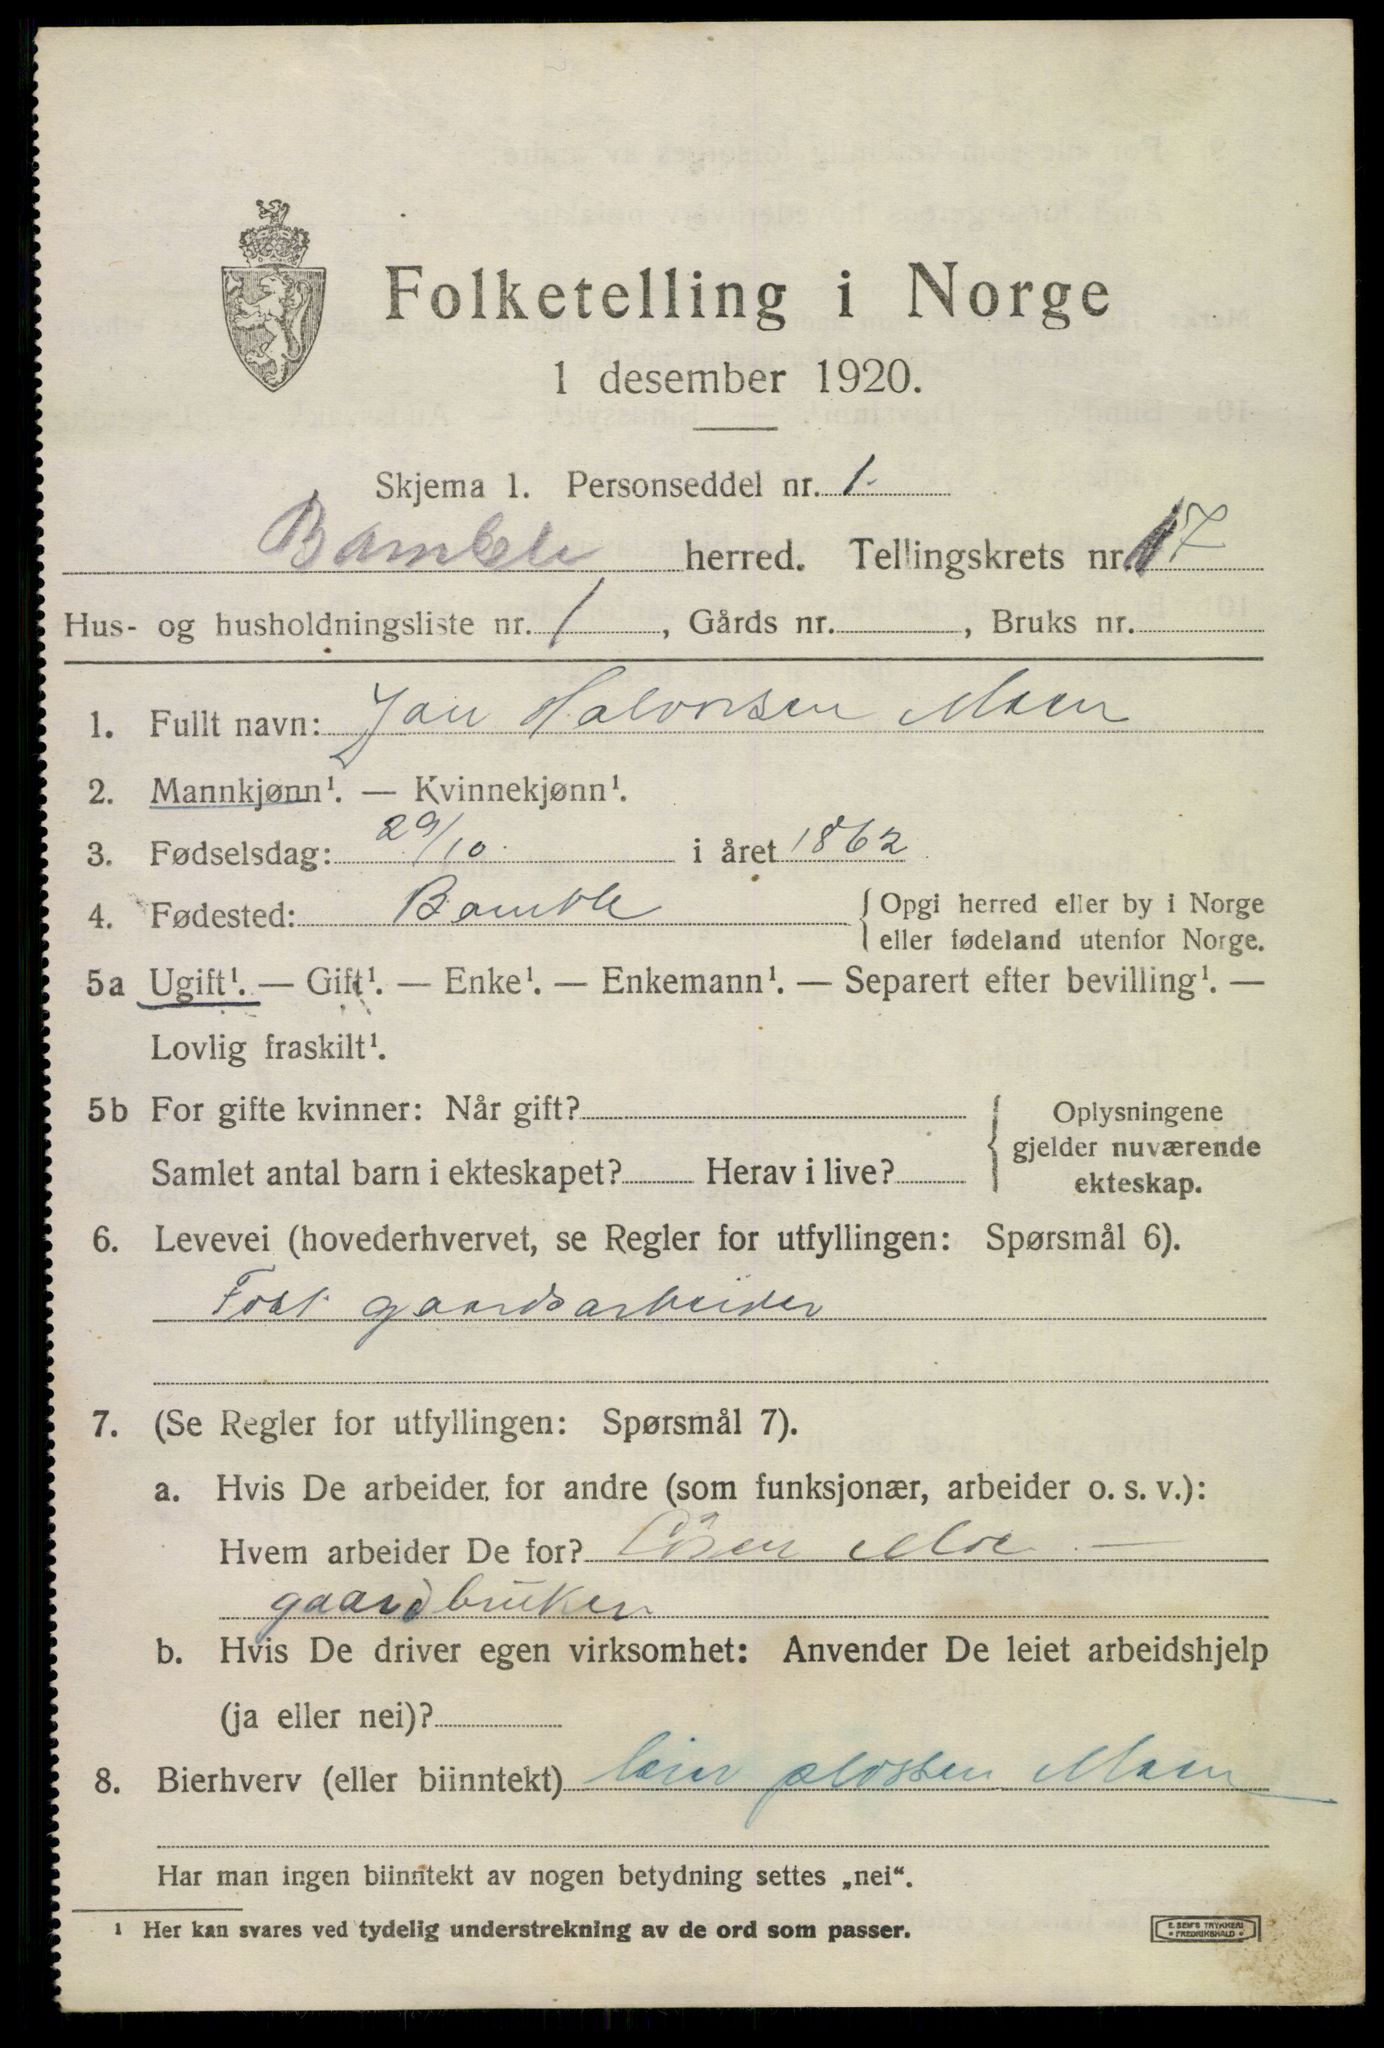 Folketelling i Norge
1 desember 1920.
Skjema 1. Personseddel nr. 1.
Bamble herred. Tellingskrets nr. 17
Hus- og husholdningsliste nr. 1, Gårds nr. , Bruks nr.
1. Fullt navn: Jan Halvorsen Moen
2. Mannkjønn¹. — Kvinnekjønn¹.
3. Fødselsdag: 29/10. i året 1862
4. Fødested: Bamble { Opgi herred eller by i Norge
eller fødeland utenfor Norge.
5a Ugift¹. — Gift¹. — Enke¹. — Enkemann¹. — Separert efter bevilling¹. —
Lovlig fraskilt¹.
5b For gifte kvinner: Når gift? { Oplysningene
gjelder nuværende
Samlet antal barn i ekteskapet? Herav i live? ekteskap.
6. Levevei (hovederhvervet, se Regler for utfyllingen: Spørsmål 6).
Fast gaardsarbeider
7. (Se Regler for utfyllingen: Spørsmål 7).
a. Hvis De arbeider for andre (som funksjonær, arbeider o. s. v.):
Hvem arbeider De for? Moe —
gaardbruker
b. Hvis De driver egen virksomhet: Anvender De leiet arbeidshjelp
(ja eller nei)?
8. Bierhverv (eller biinntekt) leier plassen Moen
Har man ingen biinntekt av nogen betydning settes „nei“.
¹ Her kan svares ved tydelig understrekning av de ord som passer.
E. SEM'S TRYKKERI
* FREDRIKSHALD *